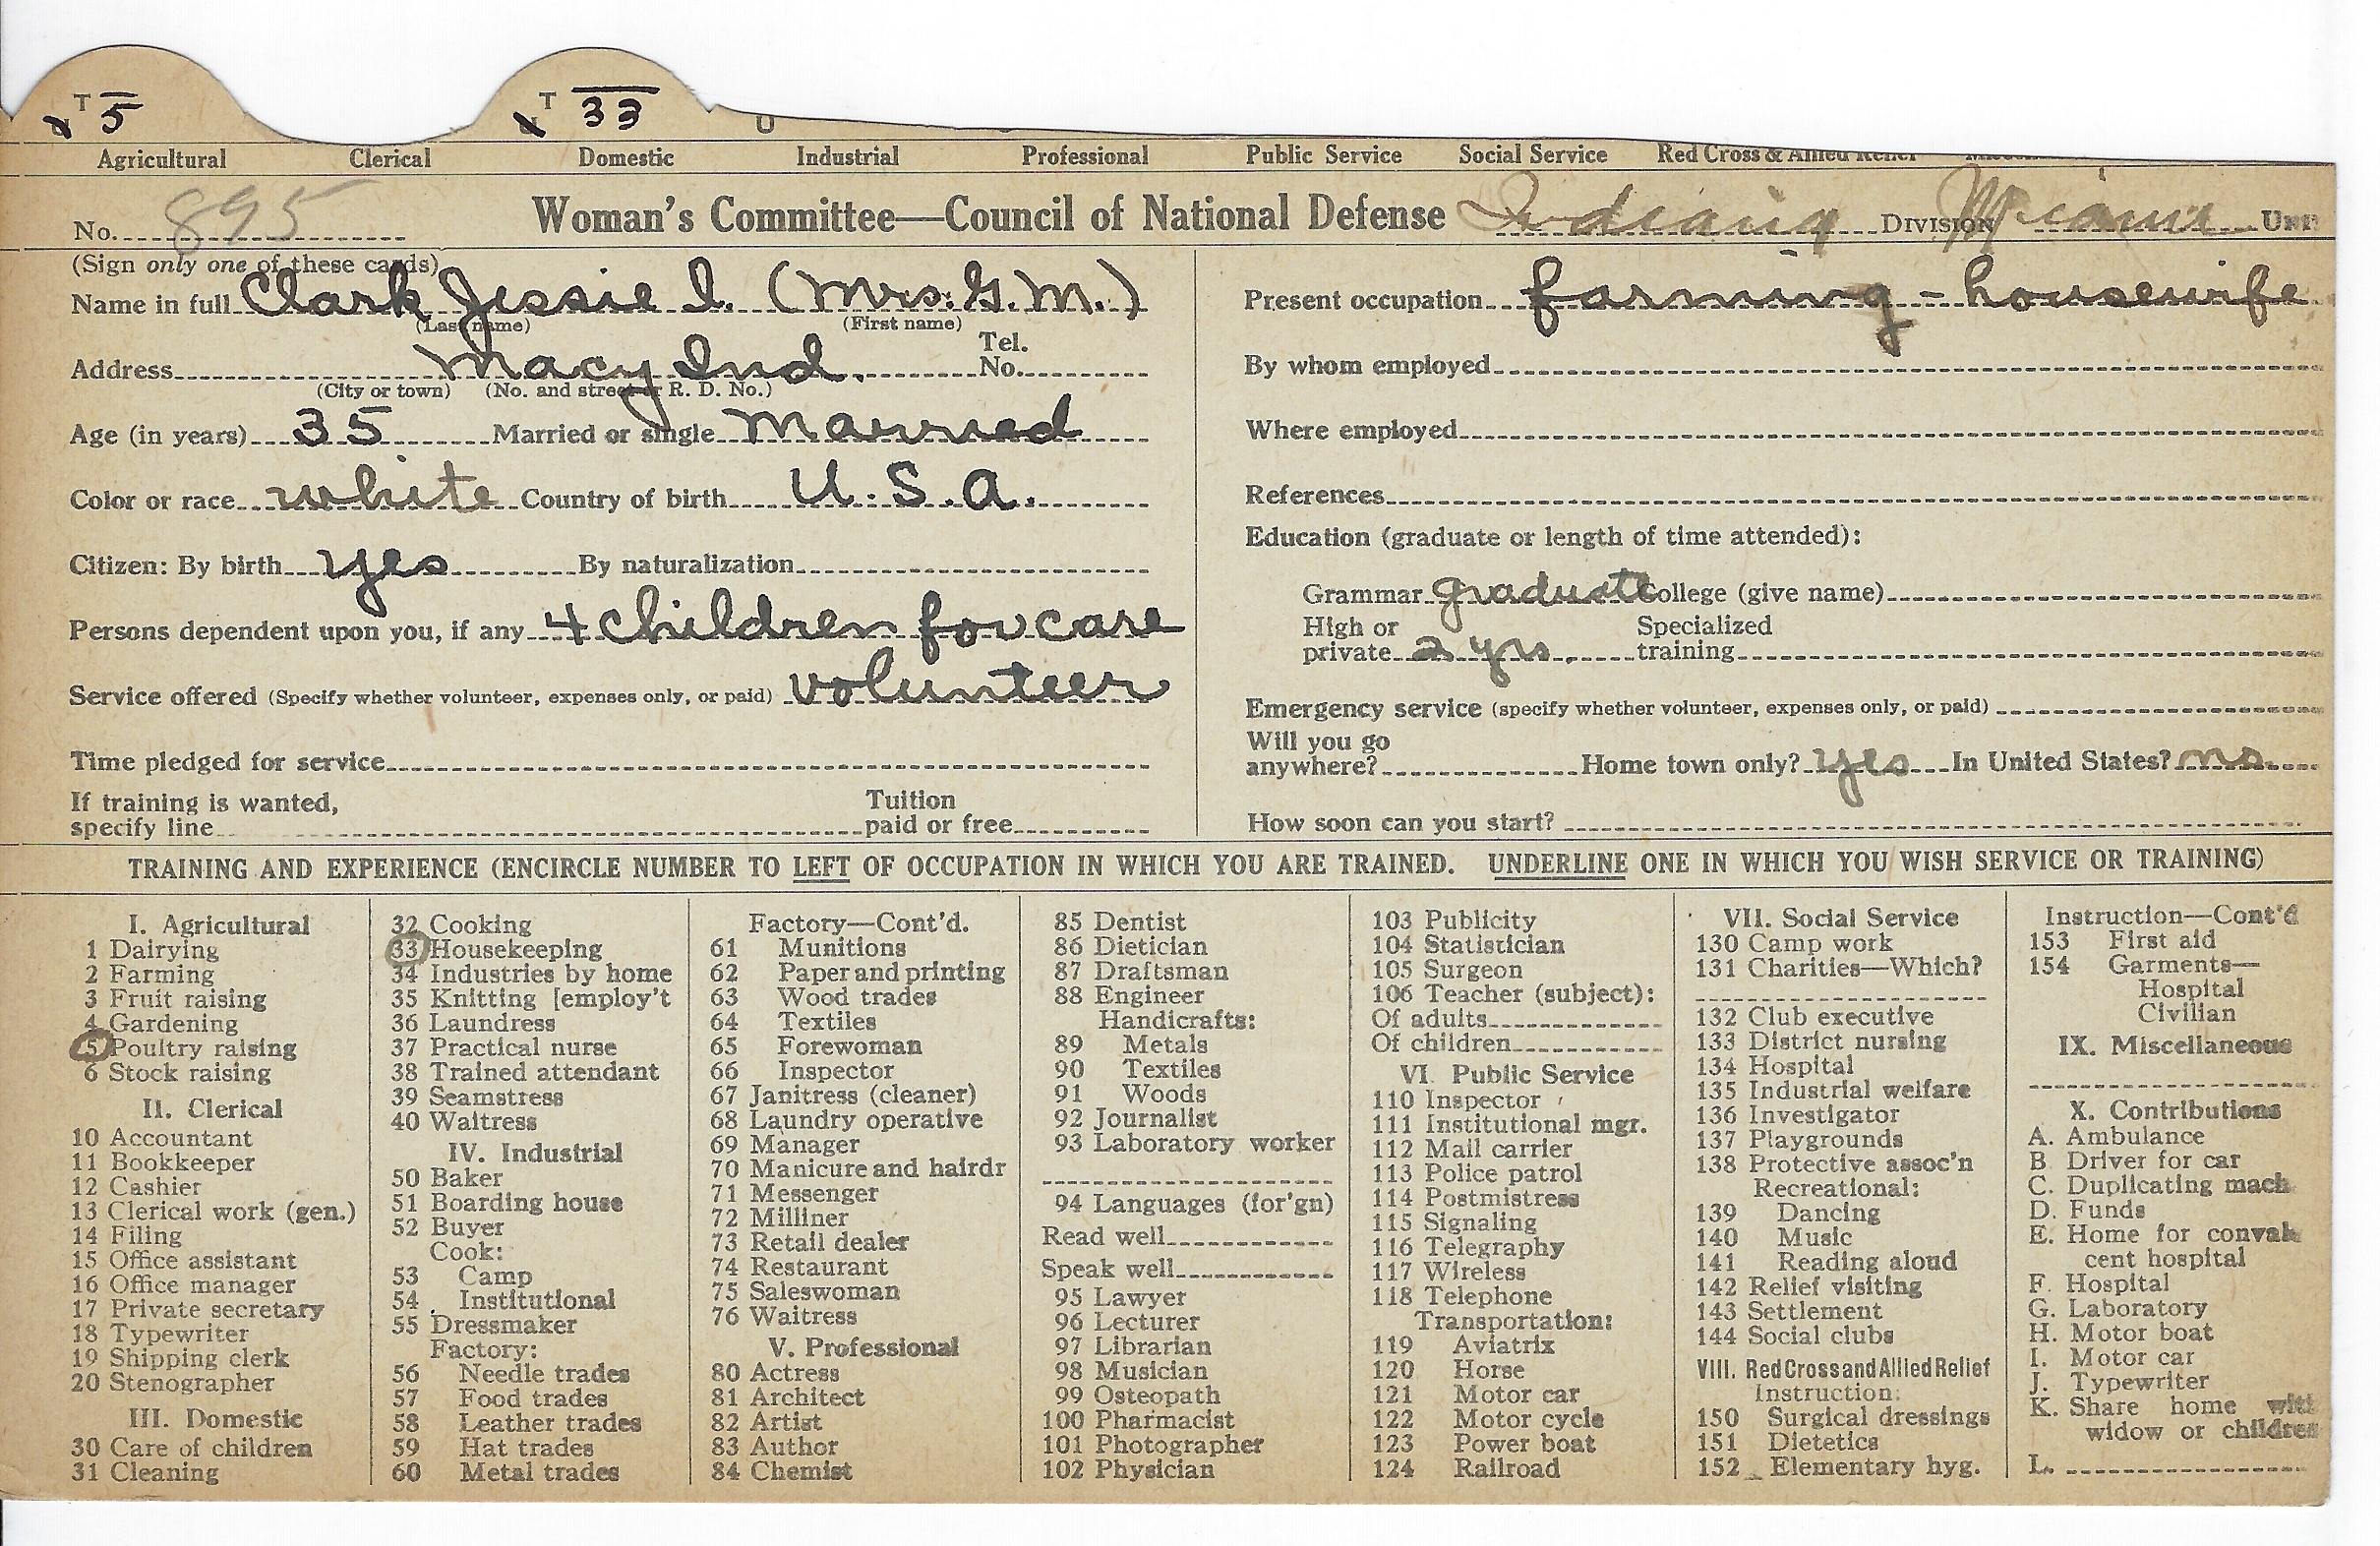 T 5 T 33
Agricultural Clerical Domestic Industrial Professional Public Service Social Service Red Cross & Allied Relief
No. 895 Woman's Committee—Council of National Defense Indiana Division Miami Unit
(Sign only one of these cards)
Name in full Clark Jessie I. (Mrs. G.M.)
(Last name) (First name)
Address Macy Ind. Tel. No.
(City or town) (No. and street or R. D. No.)
Age (in years) 35 Married or single Married
Color or race white Country of birth U.S.A.
Citizen: By birth yes By naturalization
Persons dependent upon you, if any 4 children for care
Service offered (Specify whether volunteer, expenses only, or paid) volunteer
Time pledged for service
If training is wanted, specify line Tuition paid or free
Present occupation farming - housewife
By whom employed
Where employed
References
Education (graduate or length of time attended):
Grammar graduate College (give name)
High or private 2 yrs. Specialized training
Emergency service (specify whether volunteer, expenses only, or paid)
Will you go anywhere? Home town only? yes In United States? no.
How soon can you start?
TRAINING AND EXPERIENCE (ENCIRCLE NUMBER TO LEFT OF OCCUPATION IN WHICH YOU ARE TRAINED. UNDERLINE ONE IN WHICH YOU WISH SERVICE OR TRAINING)
I. Agricultural
1 Dairying
2 Farming
3 Fruit raising
4 Gardening
5 Poultry raising
6 Stock raising
II. Clerical
10 Accountant
11 Bookkeeper
12 Cashier
13 Clerical work (gen.)
14 Filing
15 Office assistant
16 Office manager
17 Private secretary
18 Typewriter
19 Shipping clerk
20 Stenographer
III. Domestic
30 Care of children
31 Cleaning
32 Cooking
33 Housekeeping
34 Industries by home
35 Knitting [employ't
36 Laundress
37 Practical nurse
38 Trained attendant
39 Seamstress
40 Waitress
IV. Industrial
50 Baker
51 Boarding house
52 Buyer
Cook:
53 Camp
54 Institutional
55 Dressmaker
Factory:
56 Needle trades
57 Food trades
58 Leather trades
59 Hat trades
60 Metal trades
Factory—Cont'd.
61 Munitions
62 Paper and printing
63 Wood trades
64 Textiles
65 Forewoman
66 Inspector
67 Janitress (cleaner)
68 Laundry operative
69 Manager
70 Manicure and hairdr
71 Messenger
72 Milliner
73 Retail dealer
74 Restaurant
75 Saleswoman
76 Waitress
V. Professional
80 Actress
81 Architect
82 Artist
83 Author
84 Chemist
85 Dentist
86 Dietician
87 Draftsman
88 Engineer
Handicrafts:
89 Metals
90 Textiles
91 Woods
92 Journalist
93 Laboratory worker
94 Languages (for'gn)
Read well
Speak well
95 Lawyer
96 Lecturer
97 Librarian
98 Musician
99 Osteopath
100 Pharmacist
101 Photographer
102 Physician
103 Publicity
104 Statistician
105 Surgeon
106 Teacher (subject):
Of adults
Of children
VI. Public Service
110 Inspector
111 Institutional mgr.
112 Mail carrier
113 Police patrol
114 Postmistress
115 Signaling
116 Telegraphy
117 Wireless
118 Telephone
Transportation:
119 Aviatrix
120 Horse
121 Motor car
122 Motor cycle
123 Power boat
124 Railroad
VII. Social Service
130 Camp work
131 Charities—Which?
132 Club executive
133 District nursing
134 Hospital
135 Industrial welfare
136 Investigator
137 Playgrounds
138 Protective assoc'n
Recreational:
139 Dancing
140 Music
141 Reading aloud
142 Relief visiting
143 Settlement
144 Social clubs
VIII. Red Cross and Allied Relief
Instruction:
150 Surgical dressings
151 Dietetics
152 Elementary hyg.
Instruction—Cont'd
153 First aid
154 Garments—
Hospital
Civilian
IX. Miscellaneous
X. Contributions
A. Ambulance
B Driver for car
C. Duplicating mach
D. Funds
E. Home for convales
cent hospital
F. Hospital
G. Laboratory
H. Motor boat
I. Motor car
J. Typewriter
K. Share home with
widow or children
L.